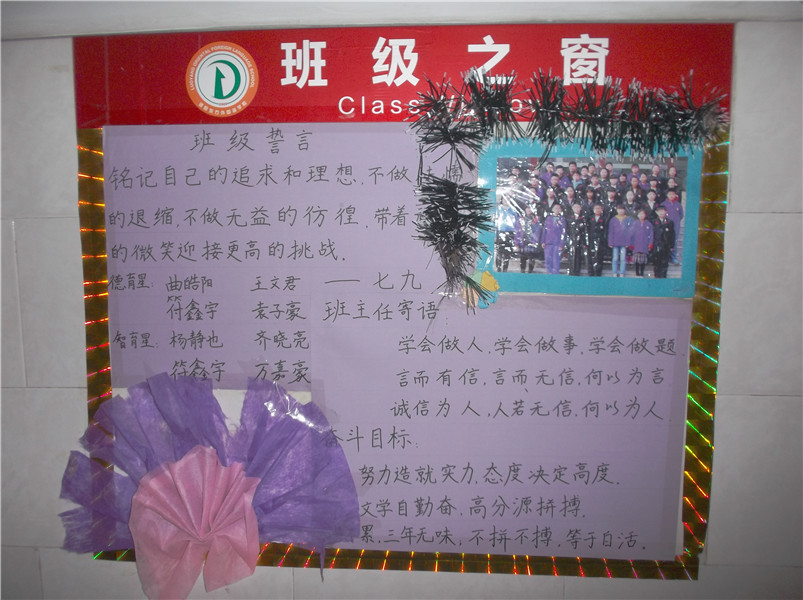 班级之窗
Class
班级誓言
铭记自己的追求和理想,不做
的退缩,不做无益的彷徨,带着
的微笑迎接更高的挑战.
德育星: 曲皓阳 王文君 — 七九
符鑫宇 袁子豪
智育星: 杨静也 齐晓亮
符鑫宇 万嘉豪
班主任寄语
学会做人,学会做事,学会做题
言而有信,言而无信,何以为言
诚信为人,人若无信,何以为人
奋斗目标:
努力造就实力,态度决定高度.
文学自勤奋,高分源拼搏.
累,三年无味,不拼不搏,等于白活.